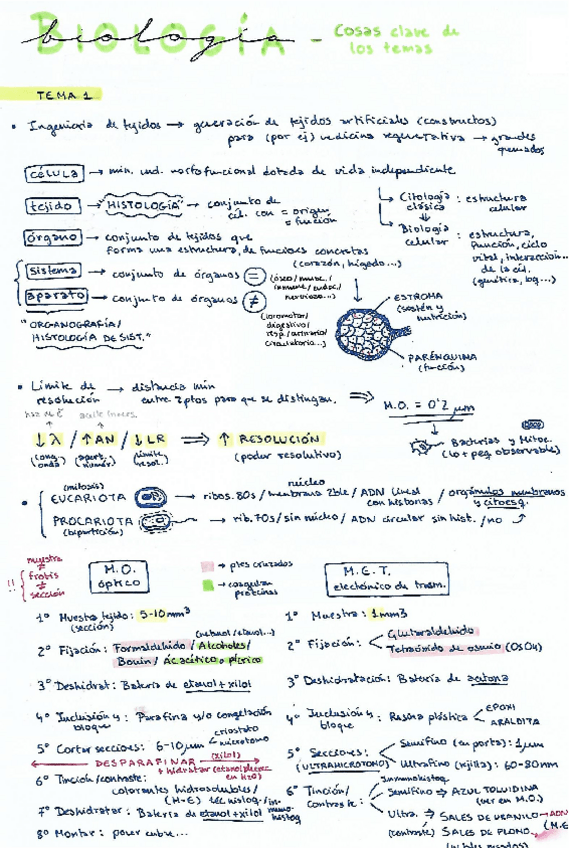 BIOLOGÍA
biología - Cosas clave de
los temas
TEMA 1
• Ingeniería de tejidos → generación de tejidos artificiales (constructos)
para (por ej) medicina regenerativa → grandes
quemados
célula → min. und. morfofuncional dotada de vida independiente
tejido → "HISTOLOGÍA" → conjunto de
cél. con = origen
= función
→ Citología clásica : estructura celular
→ Biología celular : estructura, función, ciclo
vital, interacción...
de la cél.
órgano → conjunto de tejidos que
forma una estructura, de funciones concretas
(corazón, hígado...)
sistema → conjunto de órganos =
aparato → conjunto de órganos ≠
(locomotor/
digestivo/
circulatorio...)
"ORGANOGRAFÍA/
HISTOLOGÍA DE SIST."
ESTROMA
(sostén y
nutrición)
PARÉNQUIMA
(función)
• Límite de
resolución → distancia min
entre 2 ptos para que se distingan. ⇒ M.O. = 0'2 μm
↓λ / ↑AN / ↓LR ⇒ ↑ RESOLUCIÓN
(long. onda) (apert. numér.) (límite resol.) (poder resolutivo)
Bacterias y Mitoc.
(lo + peq observable)
(mitosis) núcleo
• EUCARIOTA → ribos. 80s / membrana 2ble / ADN lineal
con histonas / orgánulos membranosos
y citoesq.
PROCARIOTA → rib. 70s / sin núcleo / ADN circular sin hist. / no
(bipartición)
muestra
≠
frotis
≠
sección
!!
M.O.
óptico
→ ptes cruzados
→ coagulan
proteínas
M.E.T.
electrónico de transm.
1º Muestra tejido: 5-10 mm³
(sección)
2º Fijación: Formaldehído / Alcoholes (metanol/etanol...)
Bouin / Ác acético o pícrico
3º Deshidrat: Batería de etanol + xilol
4º Inclusión y : Parafina y/o congelación
bloque
5º Cortar secciones: 6-10 μm < criostato
microtomo
DESPARAFINAR (xilol)
+ hidratar
6º Tinción/contraste:
colorantes hidrosolubles/
(H-E)
7º Deshidratar: Batería de etanol + xilol
8º Montar: poner cubre...
1º Muestra: 1mm3
2º Fijación: < Glutaraldehído
Tetraóxido de osmio (OsO4)
3º Deshidratación: Batería de acetona
4º Inclusión y : Resina plástica < EPOXI
bloque ARALDITA
5º Secciones: < Semifino (en porta): 1μm
(ULTRAMICROTOMO) Ultrafino (rejilla): 60-80nm
6º Tinción/
contraste: Semifino ⇒ AZUL TOLUIDINA
(ver en M.O.)
Ultra. ⇒ SALES DE URANILO → ADN
(contraste) SALES DE PLOMO